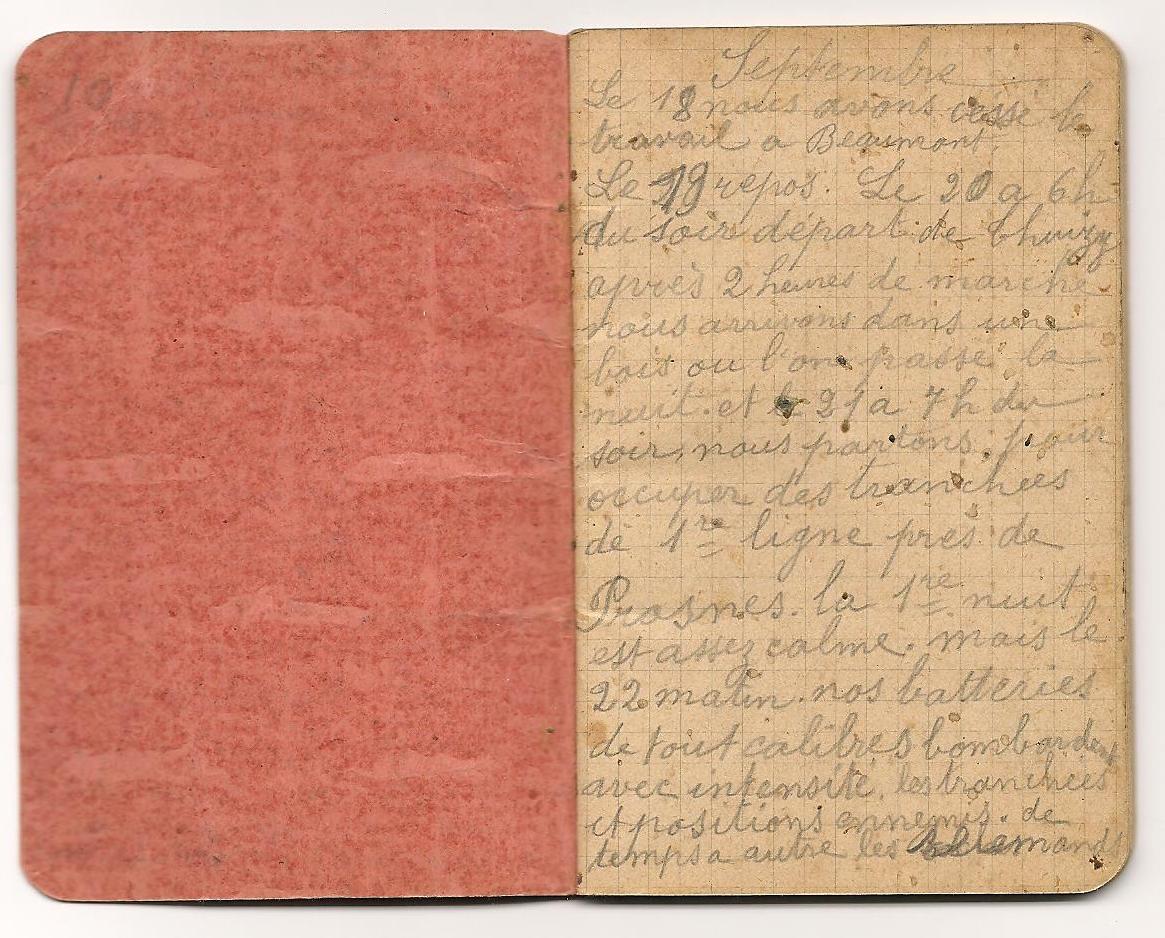 10
Septembre
Le 18 nous avons cessé le
travail a Beaumont.
Le 19 repos. Le 20 a 6h
du soir départ de Thuizy
après 2 heures de marche
nous arrivons dans une
bois ou l'on passe la
nuit. et le 21 a 7h du
soir, nous partons, pour
occuper des tranchées
de 1re ligne près de
Prosnes. la 1re nuit
est assez calme. mais le
22 matin. nos batteries
de tout calibres bombardent
avec intensité, les tranchées
et positions ennemis. de
temps a autre les Allemands